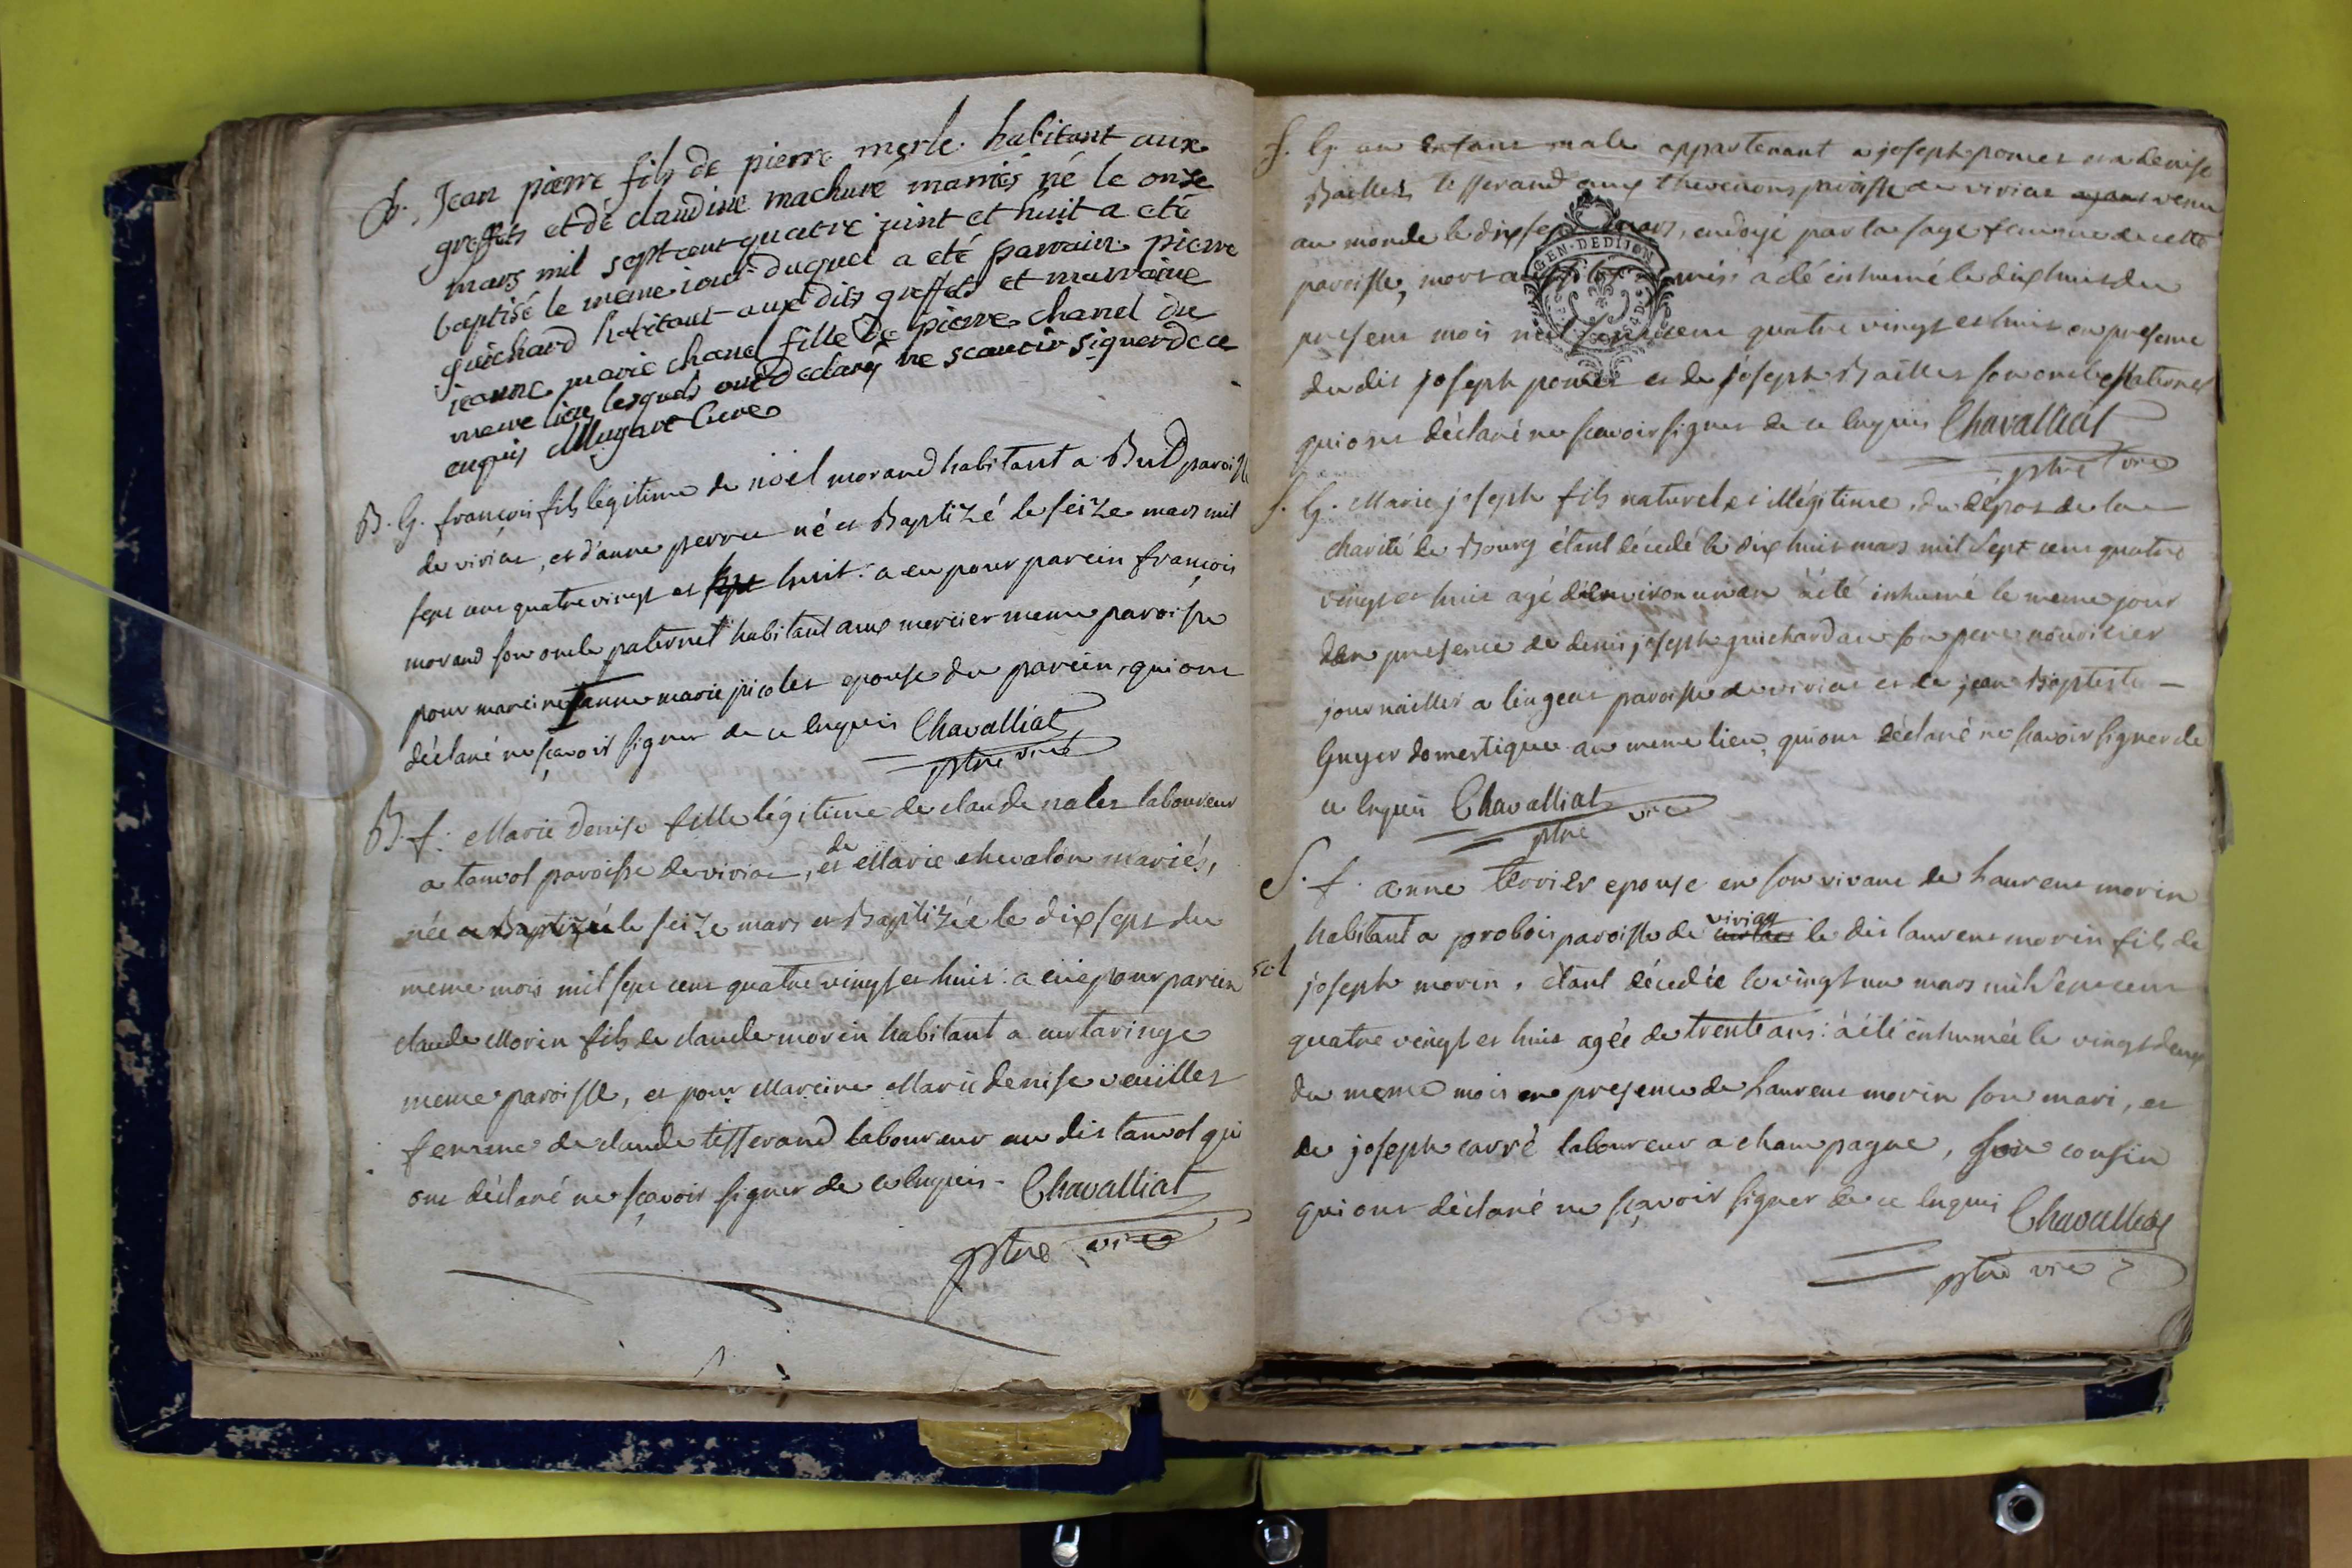 B. Jean pierre fils de pierre merle habitant aux
greffets et de claudine machuré mariés né le onze
mars mil sept cent quatre vint et huit a eté
baptisé le meme iour duquel a été parrain pierre
guichard habitant aux dits greffets et marraine
ieanne marie chanel fille de pierre chanel du
meme lieu lesquels ont declaré ne scauoir signer de ce
enquis Mugare Cure
B. G. françois fils légitime de noël morand habitant a Bud paroisse
de viriac, et d'anne perrue né et Baptizé le seize mars mil
sept cent quatre vingt et sept huit: a eu pour parein françois
morand son oncle paternel habitant aux mercier meme paroisse
pour mareine anne marie picolet epouse du parein, qui ont
déclaré ne sçavoir signer de ce enquis Chavalliat
ptre vic
B. f. Marie Denise fille légitime de claude nalet laboureur
a tanvol paroisse de viriac, et de Marie chevalon mariés,
née a Baptizée le seize mars et Baptizée le dix sept du
meme mois mil sept cent quatre vingt et huit: a eue pour parein
claude Morin fils de claude morin habitant a curtaringe
meme paroisse, et pour Mareine Marie denise veuillet
femme de claude tisserand laboureur au dit tanvol qui
ont déclaré ne sçavoir signer de ce enquis - Chavalliat
ptre vic
S. G. un enfant male appartenant a joseph pomet et a denise
Baillet, tisserand aux thevenons paroisse de viriac ayant venu
au monde le dix sept mars, endoyé par la sage femme de cette
paroisse, mort a été inhumé le dix huit du
present mois mil sept cent quatre vingt et huit en presence
du dit joseph pomet et de joseph Baillet son oncle Maternel
qui ont déclaré ne sçavoir signer de ce enquis Chavalliat
ptre vic
GEN. DE DIJON
S. G. Marie joseph fils naturel et illégitime, du dépos de la
charité de Bourg étant décedé le dix huit mars mil sept cent quatre
vingt et huit agé d'environ un an a été inhumé le meme jour
en presence de denis joseph guichardan son pere nouricier
journailler a lingeat paroisse de viriac et de jean Baptiste -
Guyer domestique au meme lieu, qui ont déclaré ne savoir signer de
ce enquis Chavalliat
ptre vic
S. f. anne terrier epouse en son vivant de Laurent morin
habitant a probois paroisse de viriac le dit laurent morin fils de
joseph morin, étant décedée le vingt un mars mil sept cent
quatre vingt et huit agée de trente ans: a été inhumée le vingt deux
du meme mois en presence de Laurent morin son mari, et
de joseph carré laboureur a champagne, son cousin
qui ont déclaré ne sçavoir signer de ce enquis Chavalliat
ptre vic